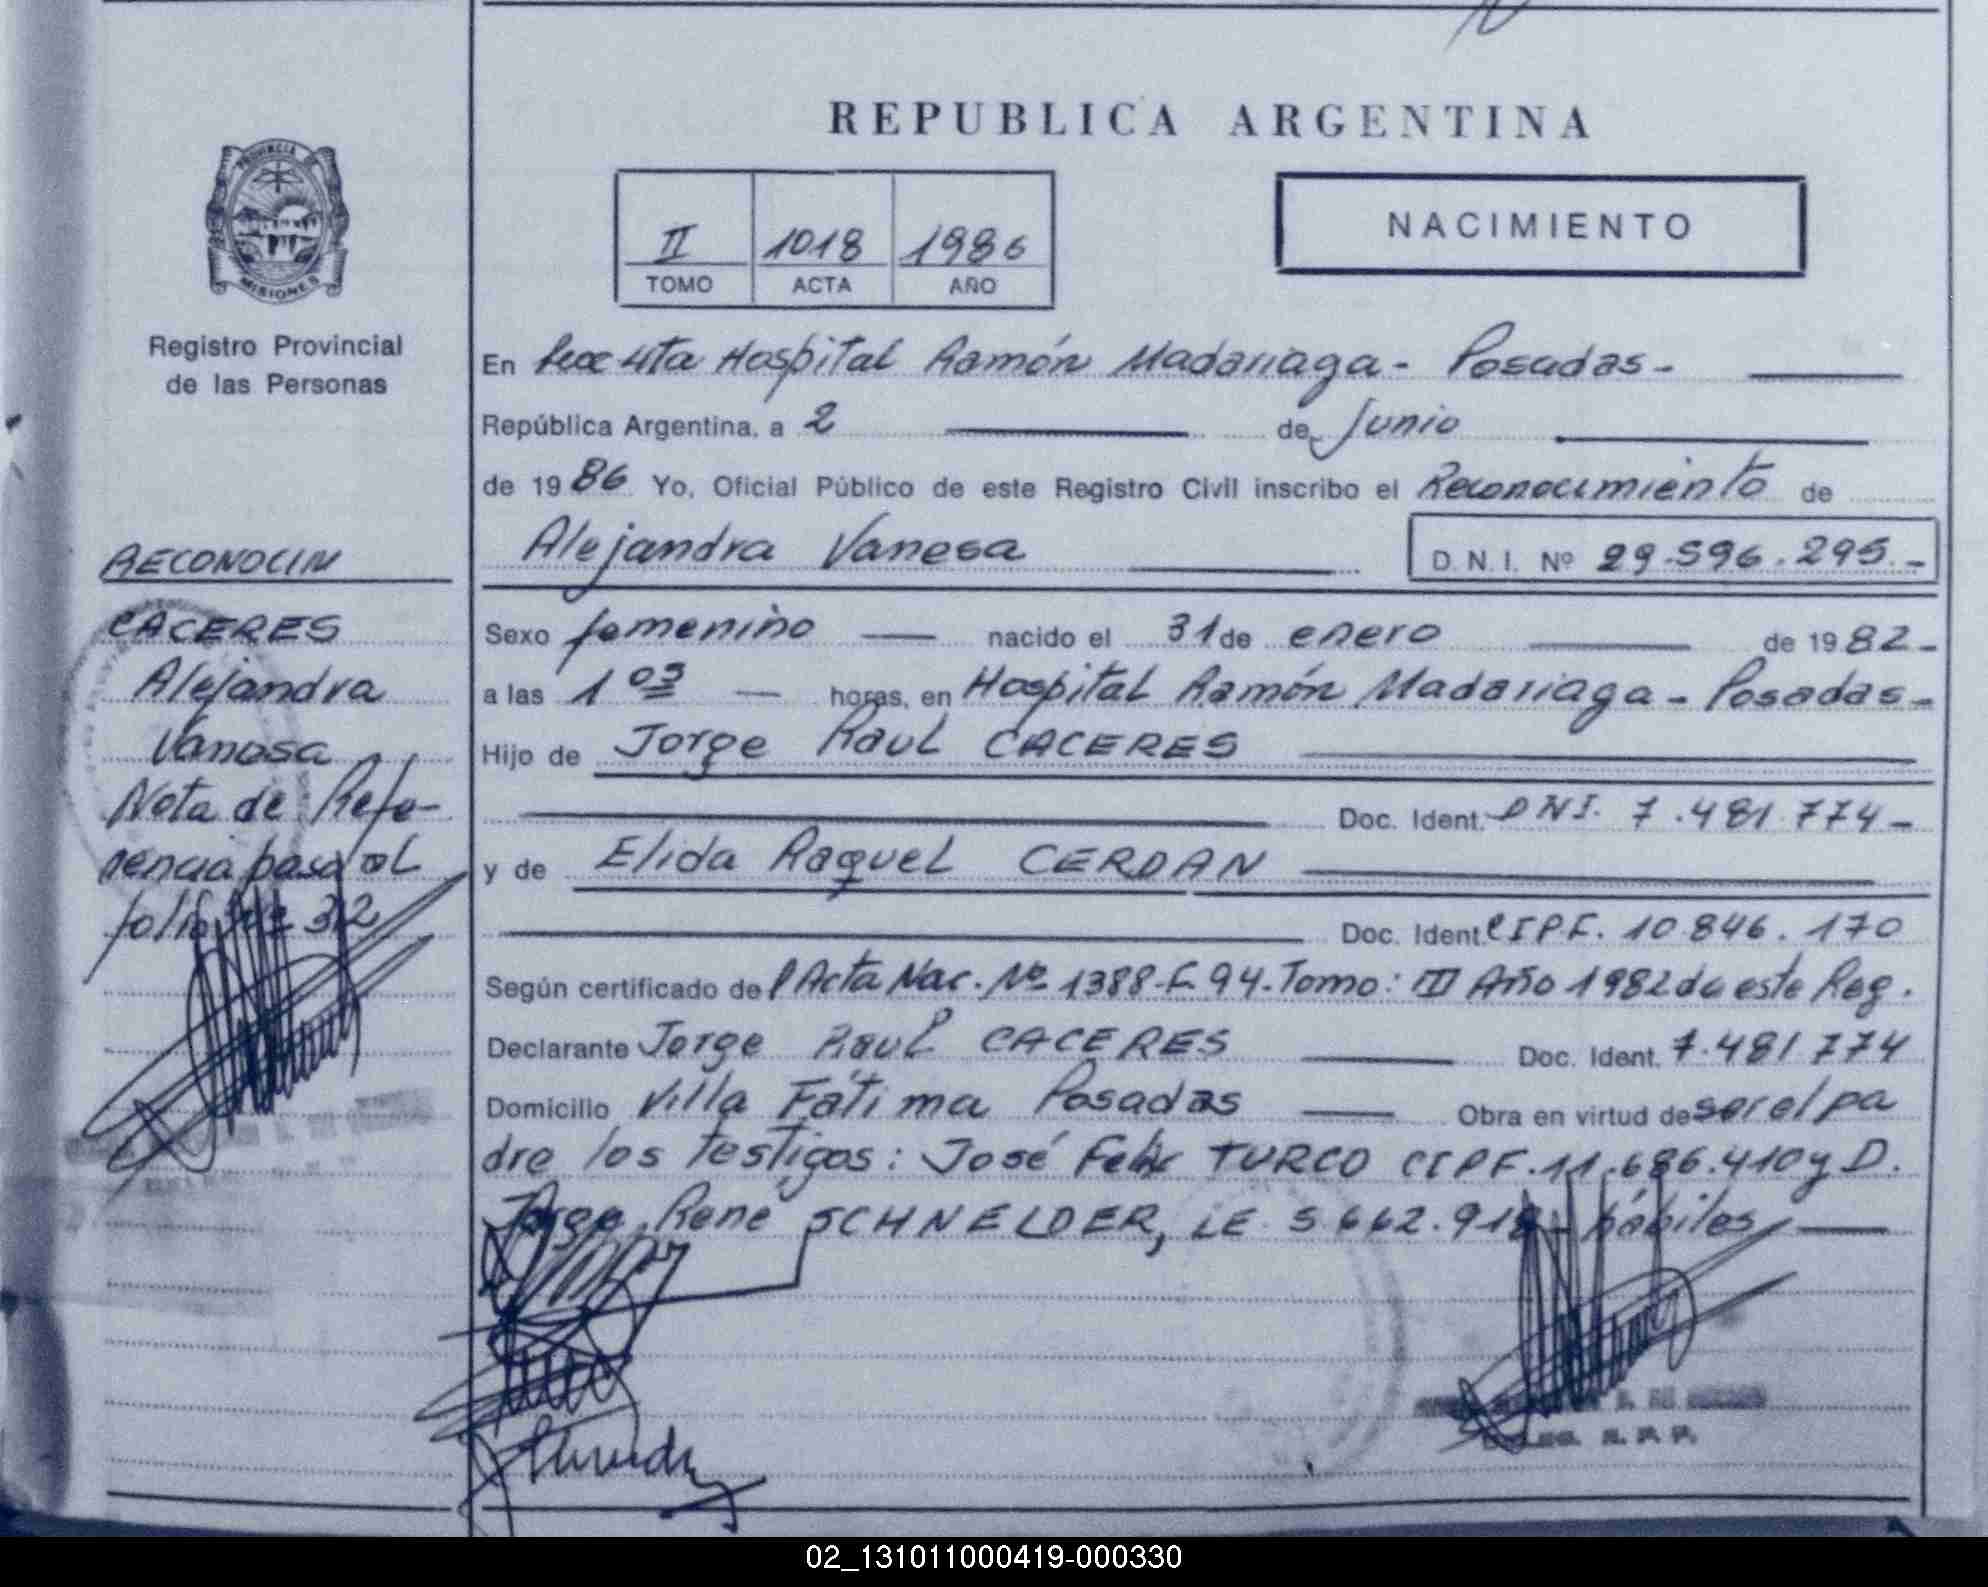 REPUBLICA ARGENTINA
PROVINCIA DE
MISIONES
Registro Provincial
de las Personas
II 1018 1986
TOMO ACTA AÑO
NACIMIENTO
En Hospital Ramón Madariaga - Posadas -
República Argentina, a 2 de Junio
de 1986 Yo, Oficial Público de este Registro Civil inscribo el Reconocimiento de
Alejandra Vanesa D.N.I. Nº 29.596.295.-
RECONOCIM
CACERES
Alejandra
Vanesa
Nota de Refe-
rencia pasa al
folio Nº 312
Sexo femenino nacido el 31 de enero de 1982 -
a las 1 03 horas, en Hospital Ramón Madariaga - Posadas -
Hijo de Jorge Raul CACERES
Doc. Ident. DNI. 7.481.774 -
y de Elida Raquel CERDAN
Doc. Ident. CIPF. 10.846.170
Según certificado de Acta Nac. Nº 1388-F. 94-Tomo: III Año 1982 de este Reg.
Declarante Jorge Raul CACERES Doc. Ident. 7.481.774
Domicilio Villa Fátima Posadas Obra en virtud de ser el pa
dre los testigos: José Felix TURCO CIPF. 11.686.410 y D.
Jorge Rene SCHNEIDER, LE 5.662.918 - hábiles
02_131011000419-000330